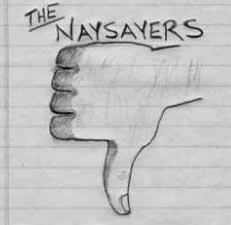 THE
NAYSAYERS